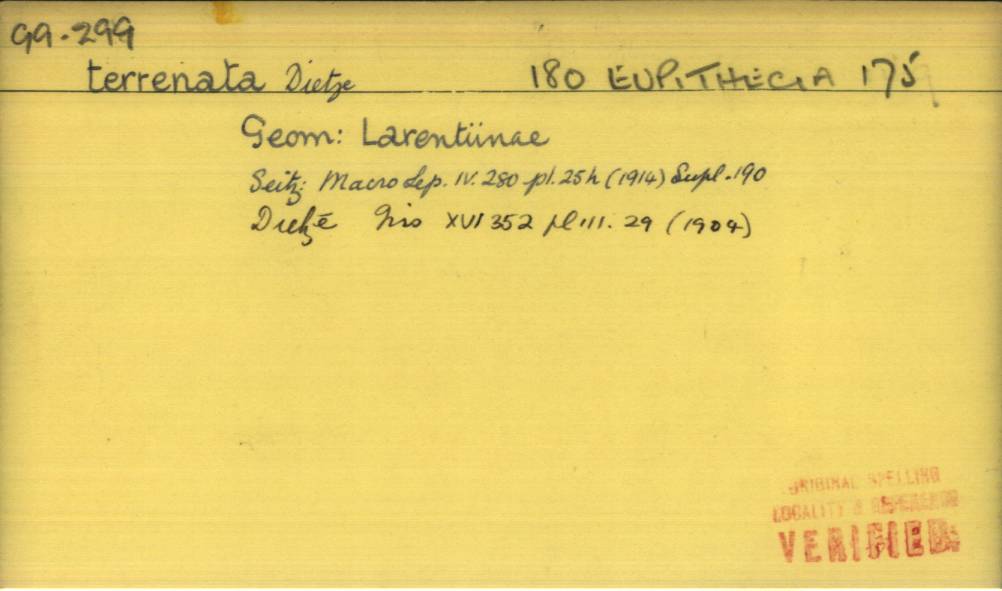 G9.299
terrenata Dietze 180 EUPITHECIA 175
Geom: Larentiinae
Seitz: Macro Lep. IV. 280 pl. 25h (1914) Supl. 190
Dietze Iris XVI 352 pl III. 29 (1904)
ORIGINAL SPELLING
LOCALITY & REFERENCE
VERIFIED